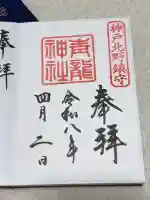 神戸北野鎮守
奉拝
青龍
神社
令和八年
四月二日
奉拝